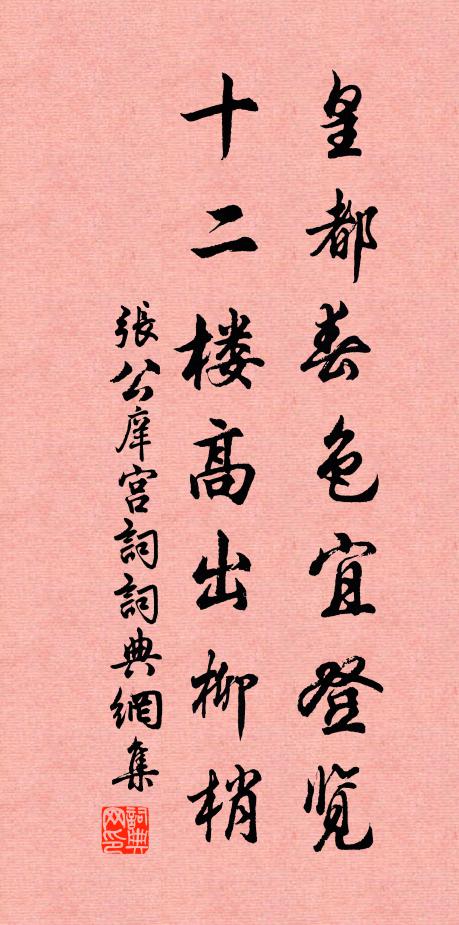 皇都春色宜登览
十二楼高出柳梢
張公庠宫詞詞典網集
詞典网印